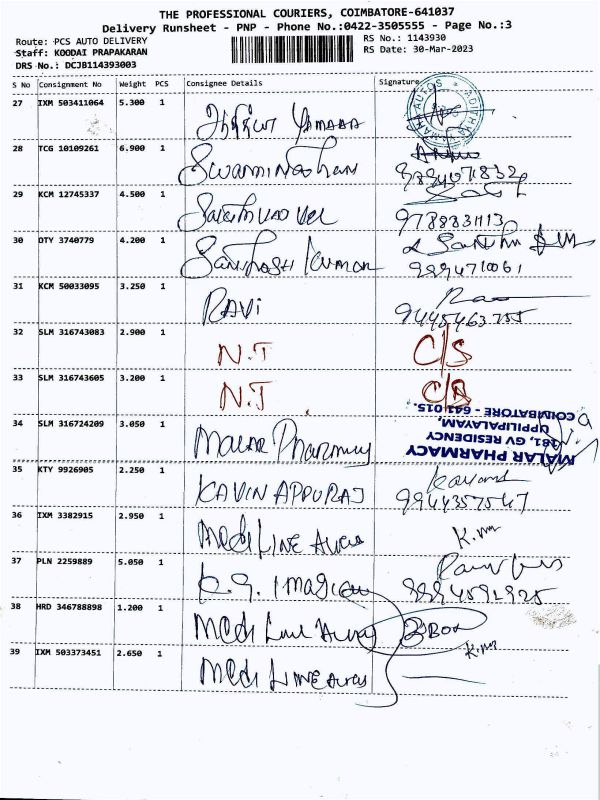 THE PROFESSIONAL COURIERS, COIMBATORE-641037
Delivery Runsheet - PNP - Phone No.:0422-3505555 - Page No.:3
Route: PCS AUTO DELIVERY
RS No.: 1143930
Staff: KOODAI PRAPAKARAN
RS Date: 30-Mar-2023
DRS No.: DCJB114393003
S No Consignment No Weight PCS Consignee Details Signature
27 IXM 503411064 5.300 1 YAMAHA
28 TCG 10109261 6.900 1 Swaminathan
29 KCM 12745337 4.500 1
9788831113
30 DTY 3740779 4.200 1 Santhosh Kumar
9994710061
31 KCM 50033095 3.250 1 RAVI
9445463755
32 SLM 316743083 2.900 1 N.T C/S
33 SLM 316743605 3.200 1 N.T
34 SLM 316724209 3.050 1 Malar Pharmacy
MALAR PHARMACY
181, GV RESIDENCY
UPPILIPALAYAM,
COIMBATORE - 641 015.
35 KTY 9926905 2.250 1 KAVIN APPURAJ
9944357547
36 IXM 3382915 2.950 1 Medi LINE
37 PLN 2259889 5.050 1 K.G.
38 HRD 346788898 1.200 1 Medi Line
39 IXM 503373451 2.650 1 Medi LINE